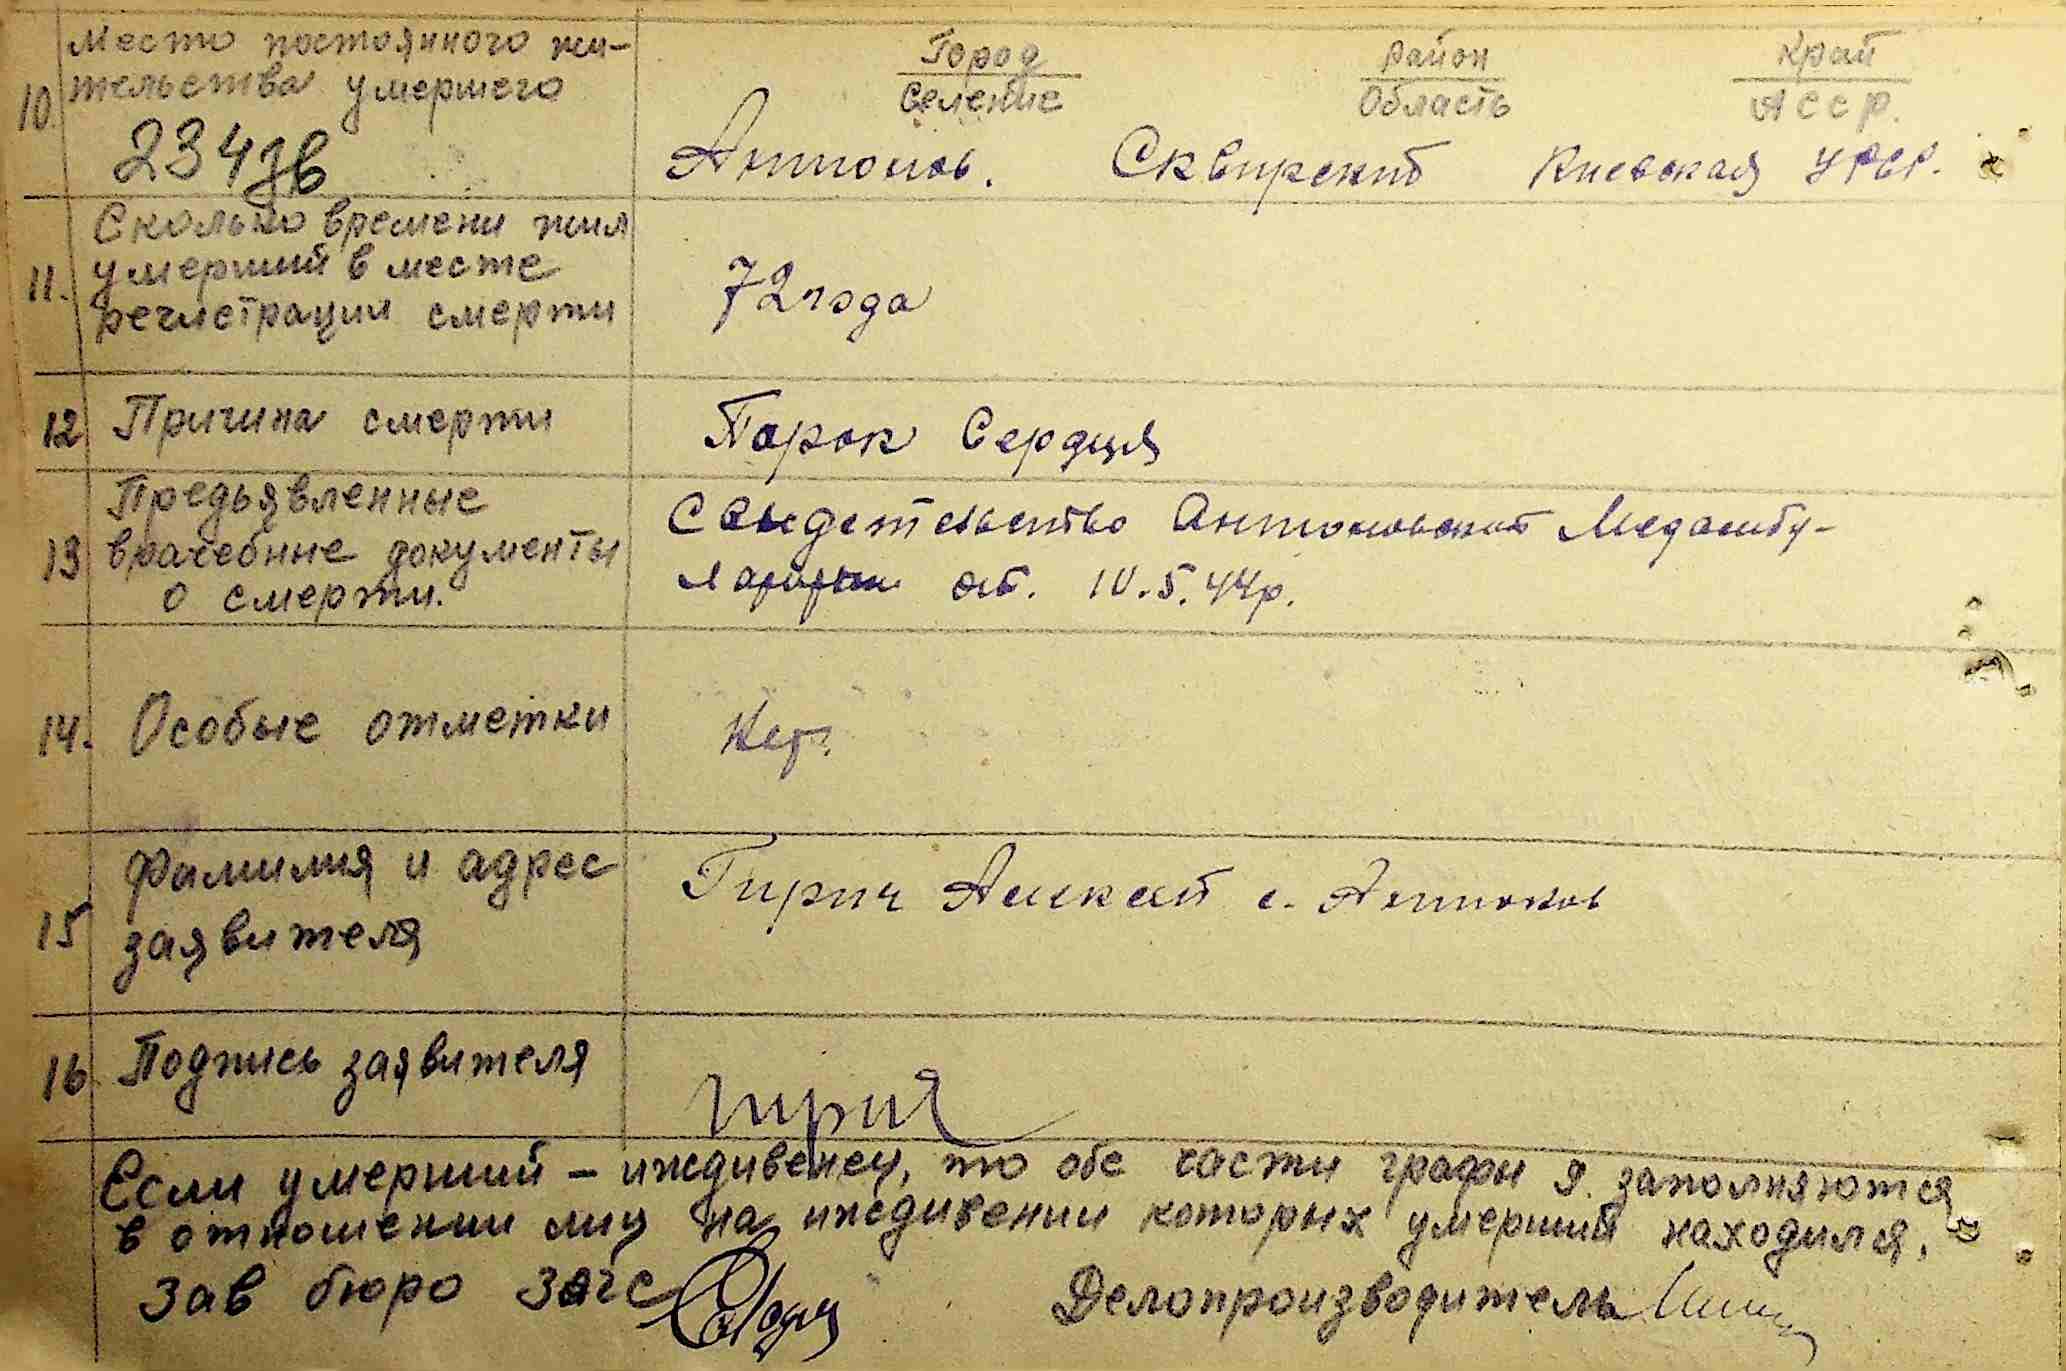 Место постоянного жи-
Город Район Край
10. тельства умершего
Селение Область АССР.
234зв
Антонов. Сквирский Киевская УРСР.
Сколько времени жил
11. умерший в месте
регистрации смерти
72 года
12 Причина смерти
Порок Сердця
Предъявленные
13 врачебные документы
о смерти.
Свидетельство Антоновский Медамбу-
латории от. 10.5.44р.
14. Особые отметки
Нет.
Фамилия и адрес
15 заявителя
Гирич Алексей с. Антонов
16 Подпись заявителя
Гирич
Если умерший – иждивенец, то обе части графы 9. заполняются
в отношении лиц на иждивении которых умерший находился.
Зав бюро Загс
Делопроизводитель